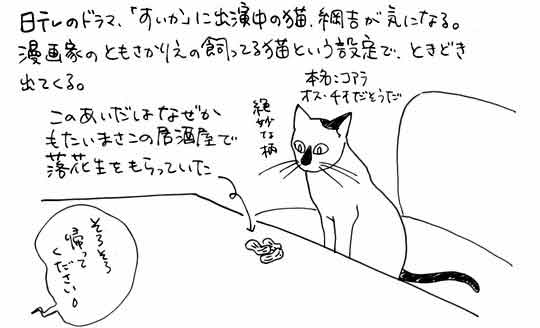 日テレのドラマ、「すいか」に出演中の猫、綱吉が気になる。
漫画家のともさかりえの飼ってる猫という設定で、ときどき
出てくる。
本名:コアラ
オス・チオだそうだ
絶妙な柄
このあいだはなぜか
もたいまさこの居酒屋で
落花生をもらっていた
そろそろ
帰って
ください。